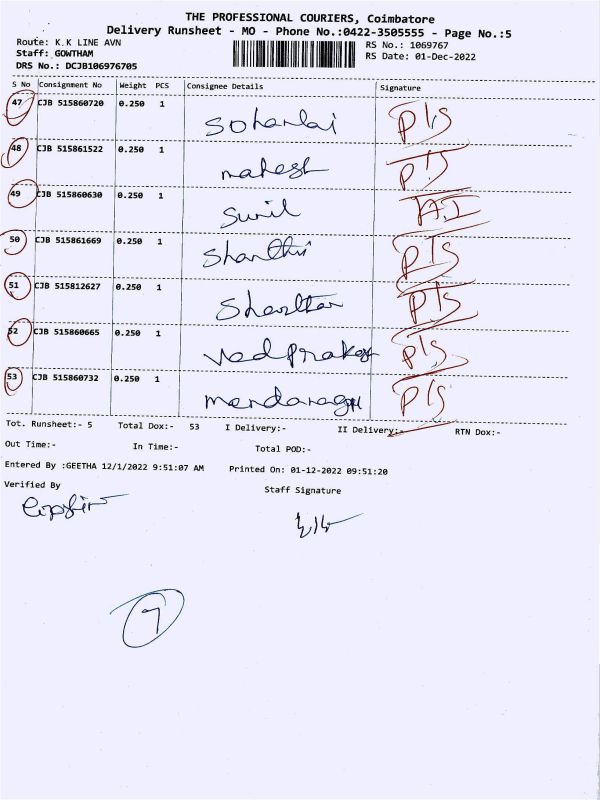 THE PROFESSIONAL COURIERS, Coimbatore
Delivery Runsheet - MO - Phone No.:0422-3505555 - Page No.:5
Route: K.K LINE AVN RS No.: 1069767
Staff: GOWTHAM RS Date: 01-Dec-2022
DRS No.: DCJB106976705
S No Consignment No Weight PCS Consignee Details Signature
47 CJB 515860720 0.250 1 Sohanlal P/S
48 CJB 515861522 0.250 1 mahesh P/S
49 CJB 515860630 0.250 1 Sunil A.I
50 CJB 515861669 0.250 1 Shanthi P/S
51 CJB 515812627 0.250 1 P/S
52 CJB 515860665 0.250 1 vedprakash P/S
53 CJB 515860732 0.250 1 P/S
Tot. Runsheet:- 5 Total Dox:- 53 I Delivery:- II Delivery:- RTN Dox:-
Out Time:- In Time:- Total POD:-
Entered By :GEETHA 12/1/2022 9:51:07 AM Printed On: 01-12-2022 09:51:20
Verified By Staff Signature
7